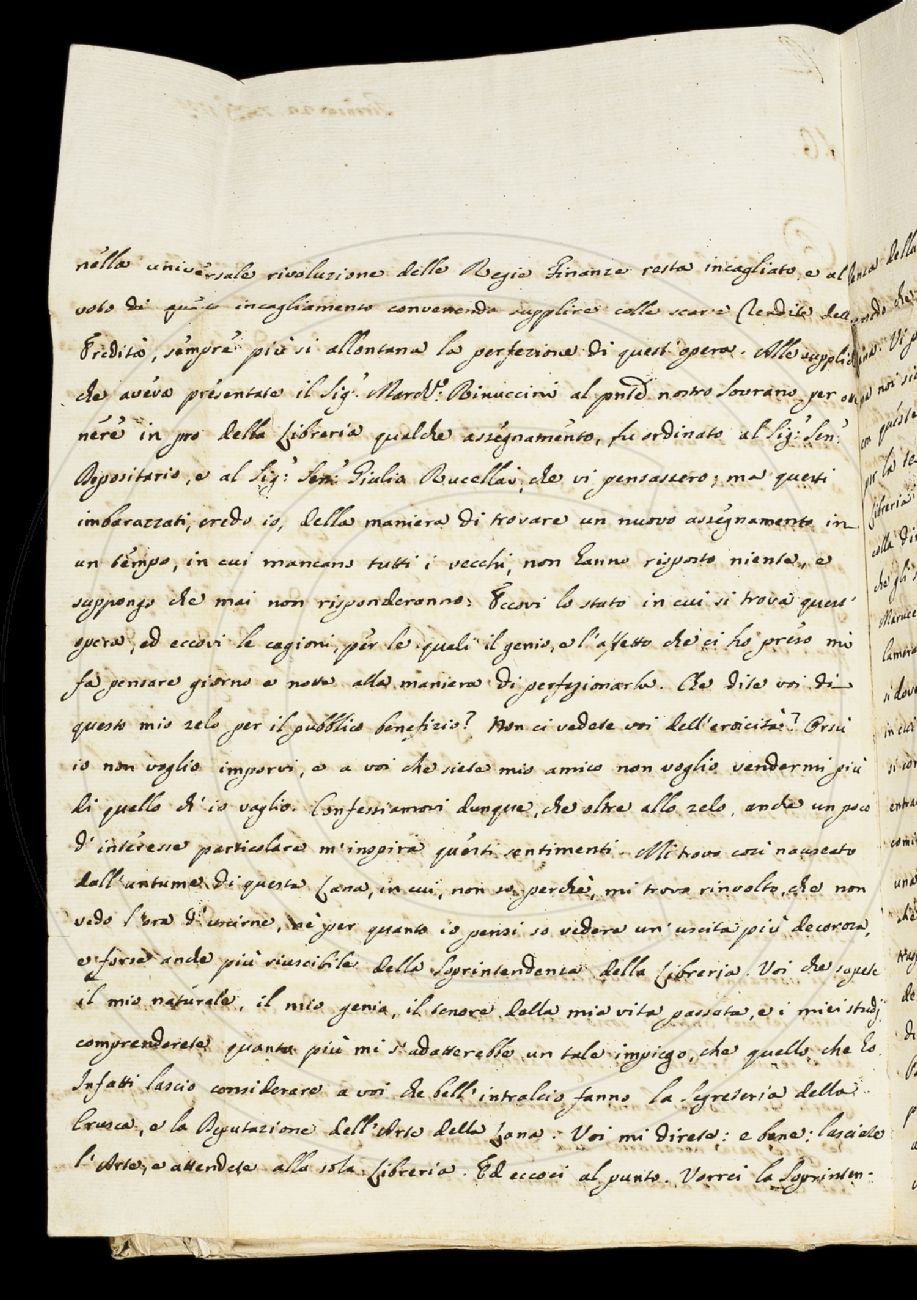 nella universale rivoluzione delle Regie Finanze resta incagliato, e al
voto di questo incagliamento convenendo supplire colle scarse Rendite dell
Eredità, sempre più si allontana la perfezione di quest'opera. Alle supplic
che aveva presentate il Sig.r March.e Rinuccini al pnte nostro Sovrano per ott
nére in pro della Libreria qualche assegnamento, fu ordinato al Sig.r Sen.r
Depositario, e al Sig.r Sen.r Giulio Rucellai, che vi pensassero; ma questi
imbarazzati, credo io, della maniera di trovare un nuovo assegnamento in
un tempo, in cui mancano tutti i vecchi, non hanno risposto niente, e
suppongo che mai non risponderanno: Eccovi lo stato in cui si trova quest'
opera, ed eccovi le cagioni, per le quali il genio, e l'affetto che ci ho preso mi
fa pensare giorno e notte alla maniera di perfezionarla. Che dite voi di
questo mio zelo per il pubblico benefizio? Non ci vedete voi dell'eroicità? Orsù
io non voglio imporvi, e a voi che siete mio amico non voglio vendermi più
di quello ch'io vaglio. Confessiamovi dunque, che oltre allo zelo, anche un poco
d'interesse particolare m'inspira questi sentimenti. Mi trovo così nauseato
dall'untume di questa Lana, in cui, non so perchè, mi trovo rinvolto, che non
vedo l'ora d'uscirne, nè per quanto io pensi so vedere un'uscita più decorosa,
e forse anche più riuscibile della Soprintendenza della Libreria. Voi che sapete
il mio naturale, il mio genio, il tenore della mia vita passata, e i miei studj
comprenderete quanto più mi s'adatterebbe un tale impiego, che quello, che ho
Infatti lascio considerare a voi che bell'intralcio fanno la Segreteria della
Crusca, e la Deputazione dell'Arte della Lana. Voi mi direte: e bene: lasciate
l'Arte, e attendete alla sola Libreria. Ed eccoci al punto. Vorrei la Soprinten-